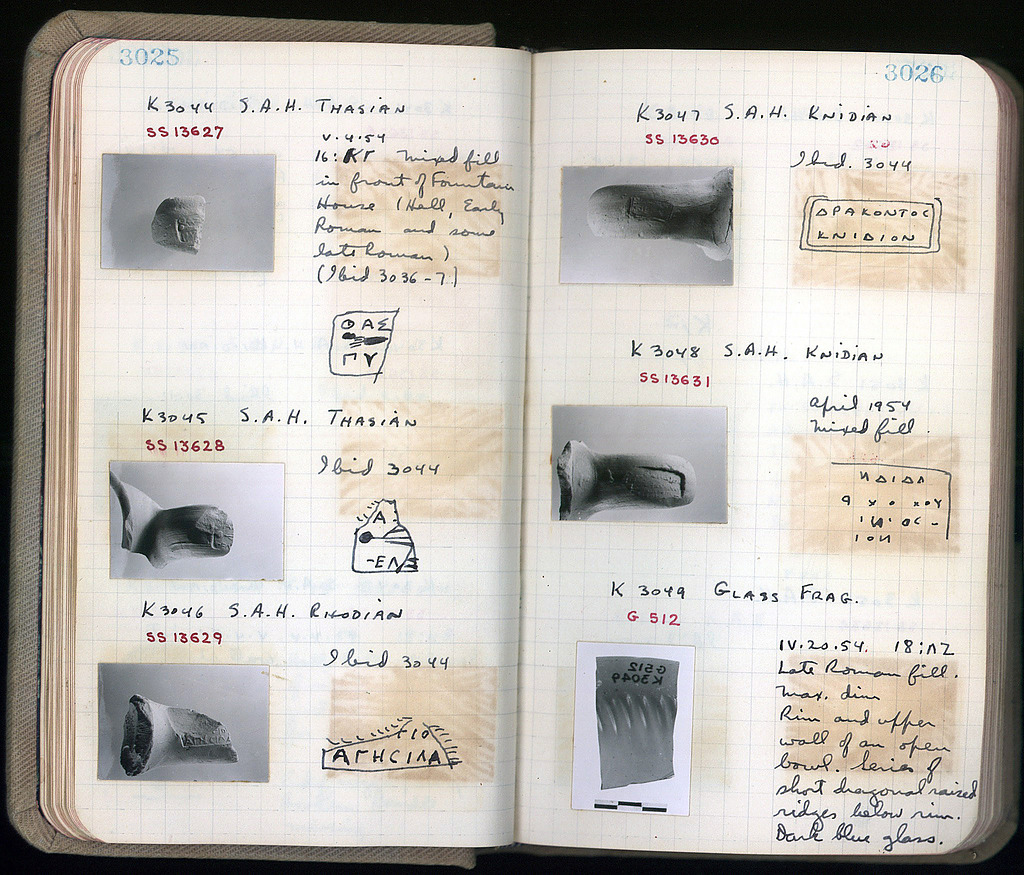 3025
K 3044 S.A.H. THASIAN
SS 13627
V.4.54
16: ΚΓ mixed fill
in front of Fountain
House (Hell, Early
Roman and some
late Roman)
(Ibid 3036-7)
ΘΑΣ
ΠΥ
K 3045 S.A.H. THASIAN
SS 13628
Ibid 3044
Α
-ΕΝ
K 3046 S.A.H. RHODIAN
SS 13629
Ibid 3044
ΓΙΟ
ΑΓΗCΙΛΑ
3026
K 3047 S.A.H. KNIDIAN
SS 13630
Ibid. 3044
ΔΡΑΚΟΝΤΟC
ΚΝΙΔΙΟΝ
K 3048 S.A.H. KNIDIAN
SS 13631
April 1954
Mixed fill.
ΙΟΝ
K 3049 GLASS FRAG.
G 512
IV.20.54. 18:ΛΖ
Late Roman fill.
Max. dim
Rim and upper
wall of an open
bowl. Series of
short diagonal raised
ridges below rim.
Dark blue glass.
G512
K 3049